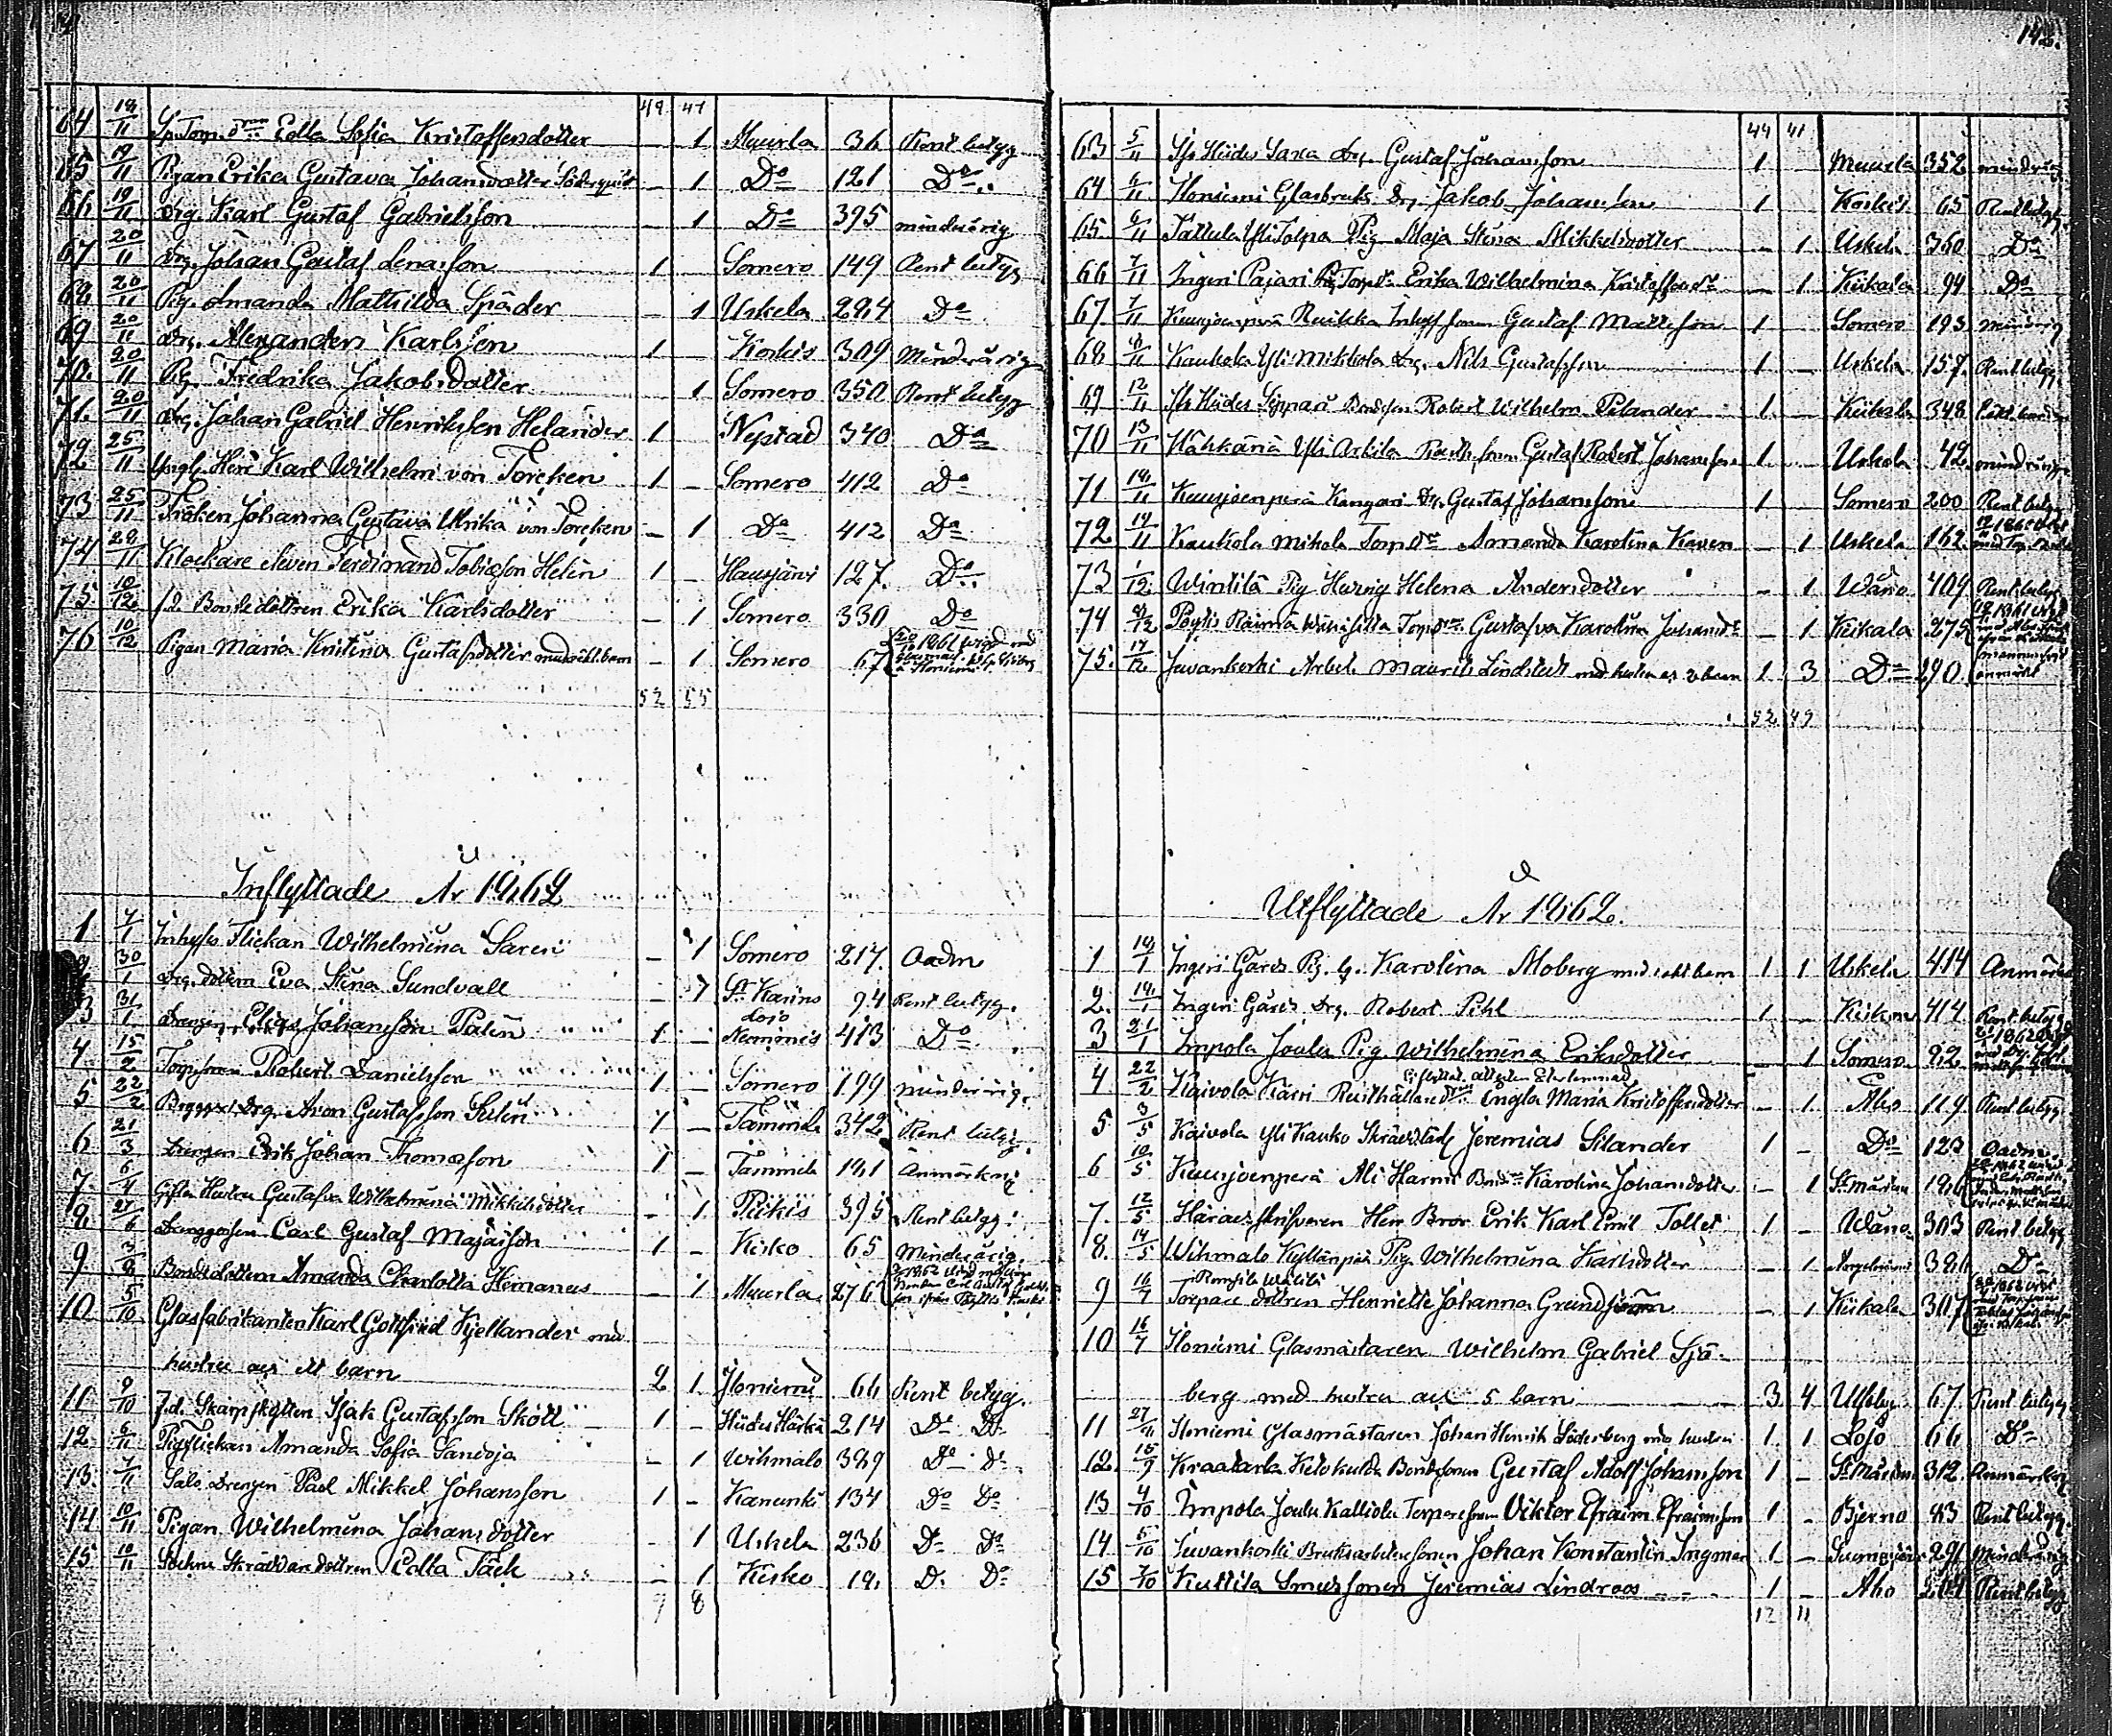 142.
49 47
64 18/11 Sp. Torp. dr Edla Sofia Kristoffersdotter – 1 Muurla 36 Rent betyg
65 19/11 Pigan Erika Gustava Johansdotter Söderqvist – 1 Do 121 Do
66 19/11 Drg. Karl Gustaf Gabrielsson – 1 Do 395 minderårig
67 20/11 Drg. Johan Gustaf Lenasson 1 – Somero 149 Rent betyg
68 20/11 Pig. Amanda Mathilda Späder – 1 Uskela 284 Do
69 20/11 Drg. Alexander Karlsson 1 – Koskis 309 Minderårig
70. 20/11 Pig. Fredrika Jakobsdotter 1 Somero 350 Rent betyg
71. 20/11 Drg. Johan Gabriel Henriksson Helander 1 – Nystad 340 Do
72 25/11 Yngl. Herr Karl Wilhelm von Torcken 1 – Somero 412 Do
73 25/11 Fröken Johanna Gustava Ulrika von Torcken – 1 Do 412 Do
74. 28/11 Klockare eleven Ferdinand Tobiasson Helin 1 – Hausjärvi 127. Do
75. 10/12 fd. Bondedottren Erika Karlsdotter – 1 Somero 330 Do
76 10/12 Pigan Maria Kristina Gustafsdotter med oächt. barn – 1 Somero 67
52 55
Inflyttade År 1862
1 7/1 Inhyses Flickan Wilhelmina Saren – 1 Somero 217. Aadm
2 30/1 Drg. dottern Eva Stina Sundvall – 1 St Karins 94 Rent betyg.
3 31/1 Drengen Elias Johansson Palen 1 – Lojo Nummis 413 Do
4. 15/2 Torp. sonen Robert Danielsson 1 – Somero 199 minderårig.
5 22/2 Drg. Aron Gustafsson Sulin 1 – Tammela 342 Rent betyg.
6. 21/3 Drengen Erik Johan Thomasson 1 – Tammela 181 Anmärkning
7. 6/4 Gifta Hustru Gustafva Wilhelmina Mikkelsdotter – 1 Pikis 395 Rent betyg.
8. 21/6 Drenggossen Carl Gustaf Majasson 1 – Kisko 65 Minderårig.
9. 3/8 Bondedottern Amanda Charlotta Hemanus – 1 Muurla 276
10 5/10 Glasfabrikanten Karl Gottfried Kjellander med
hustru och ett barn 2 1 Iloniemi 66 Rent betyg.
11 9/10 F.d. Skarpskytten Isak Gustafsson Sköld 1 – Hiides 214 Do Do
12. 6/11 Pigflickan Amanda Sofia Sandoja – 1 Wihmalo 389 Do Do
13. 7/11 Salo Drengen Paul Mikkel Johansson 1 – Kanunki 134 Do Do
14 10/11 Pigan Wilhelmina Johansdotter – 1 Uskela 236 Do Do
15 10/11 Sockne Skräddar dottren Edla Täck – 1 Kisko 18. Do Do
9 8
44 41
63 5/11 Yli Hiides Saxa Drg. Gustaf Johansson 1 Muurla 352 minderårig
64 6/11 Iloniemi Glasbruks Drg. Jakob Johansson 1 Koskis 65 Rent betyg.
65. 6/11 Tattula Yli Tolpa Pig Maja Stina Mikkelsdotter – 1 Uskela 360 Do
66 7/11 Ingeri Pajari Torp. dr Erika Wilhelmina Kristoffersdr – 1 Kiikala 94 Do
67 7/11 Kuusjoenperä Ruikka Inhyses sonen Gustaf Mattsson 1 Somero 193 minderårig
68 8/11 Kaukola Yli Mikkola Drg. Nils Gustafsson 1 – Uskela 157. Rent betyg.
69 12/11 Yli Hiides Seppari Bondeson Robert Wilhelm Pelander 1 – Kiikala 348
70 13/11 Hähkänä Yli Arkila sonen Gustaf Robert Johansson 1 – Uskela 42. minderårig
71 18/11 Kuusjoenperä Kangari Drg. Gustaf Johansson 1 Somero 200 Rent betyg
72 19/11 Kaukola Mikola Torp dr Amanda Karolina Kaven – 1 Uskela 162
73 1/12 Wintilä Pig Hedvig Helena Andersdotter – 1 Wånå 409 Rent betyg
74 8/12 Pöytis Raimä Torp dr Gustafva Karolina Johansdr – 1 Kiikala 275
75. 17/12 Juvankoski Arbet. Maurits Lindstedt med hustru och 2 barn 1 3 Do 290.
52 49
Utflyttade År 1862.
1 14/1 Ingeri Gårds Pig. Karolina Moberg med oäkt barn 1 1 Uskela 414 Anmärkn
2. 14/1 Ingeri Gårds Drg. Robert Pihl 1 – 414 Rent betyg
3 21/1 Impola Joula Pig Wilhelmina Eriksdotter – 1 Somero 82
4 22/2 Kaivola Käiri Rusthållaredr Engla Maria Kristoffersdotter – 1 Åbo 119 Rent betyg
5 3/5 Kaivola Yli Kauko Jeremias Silander 1 – Do 123 Aadm.
6 10/5 Kuusjoenperä Ali Harmi Bondedr Karolina Johansdotter – 1 St Mårtens 186
7. 12/5 Häradsskrifvaren Herr Bror Erik Karl Emil Tollet 1 – Wånå 303 Rent betyg
8. 14/5 Wihmalo Kyllänpää Pig Wilhelmina Karlsdotter – 1 381 Do
9 16/7 Torpare dottren Henriette Johanna Grundström – 1 Kiikala 307
10 16/7 Iloniemi Glasmästaren Wilhelm Gabriel Sjö-
berg med hustru och 5 barn 3 4 Ulfsby 67. Rent betyg
11 27/8 Iloniemi Glasmästaren Johan Henrik Söderberg med hustru 1 1 Lojo 66 Do
12. 15/9 Kraatarla Ketokulda Bondesonen Gustaf Adolf Johansson 1 – St Mårtens 312 Anmärkning
13 4/10 Impola Joula Kalliola Torparesonen Viktor Efraim Efraimsson 1 – Bjerno 83 Rent betyg.
14. 5/10 Juvankoski Bruksarbetaresonen Johan Konstantin Ingman 1 – 291 Minderårig
15 7/10 Kuttila Smedssonen Jeremias Lindroos 1 – Åbo 264 Rent betyg
12 11